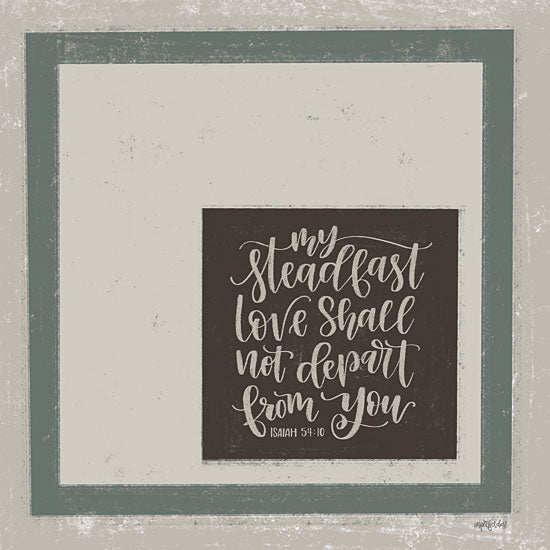 my
steadfast
love shall
not depart
from you
ISAIAH 54:10